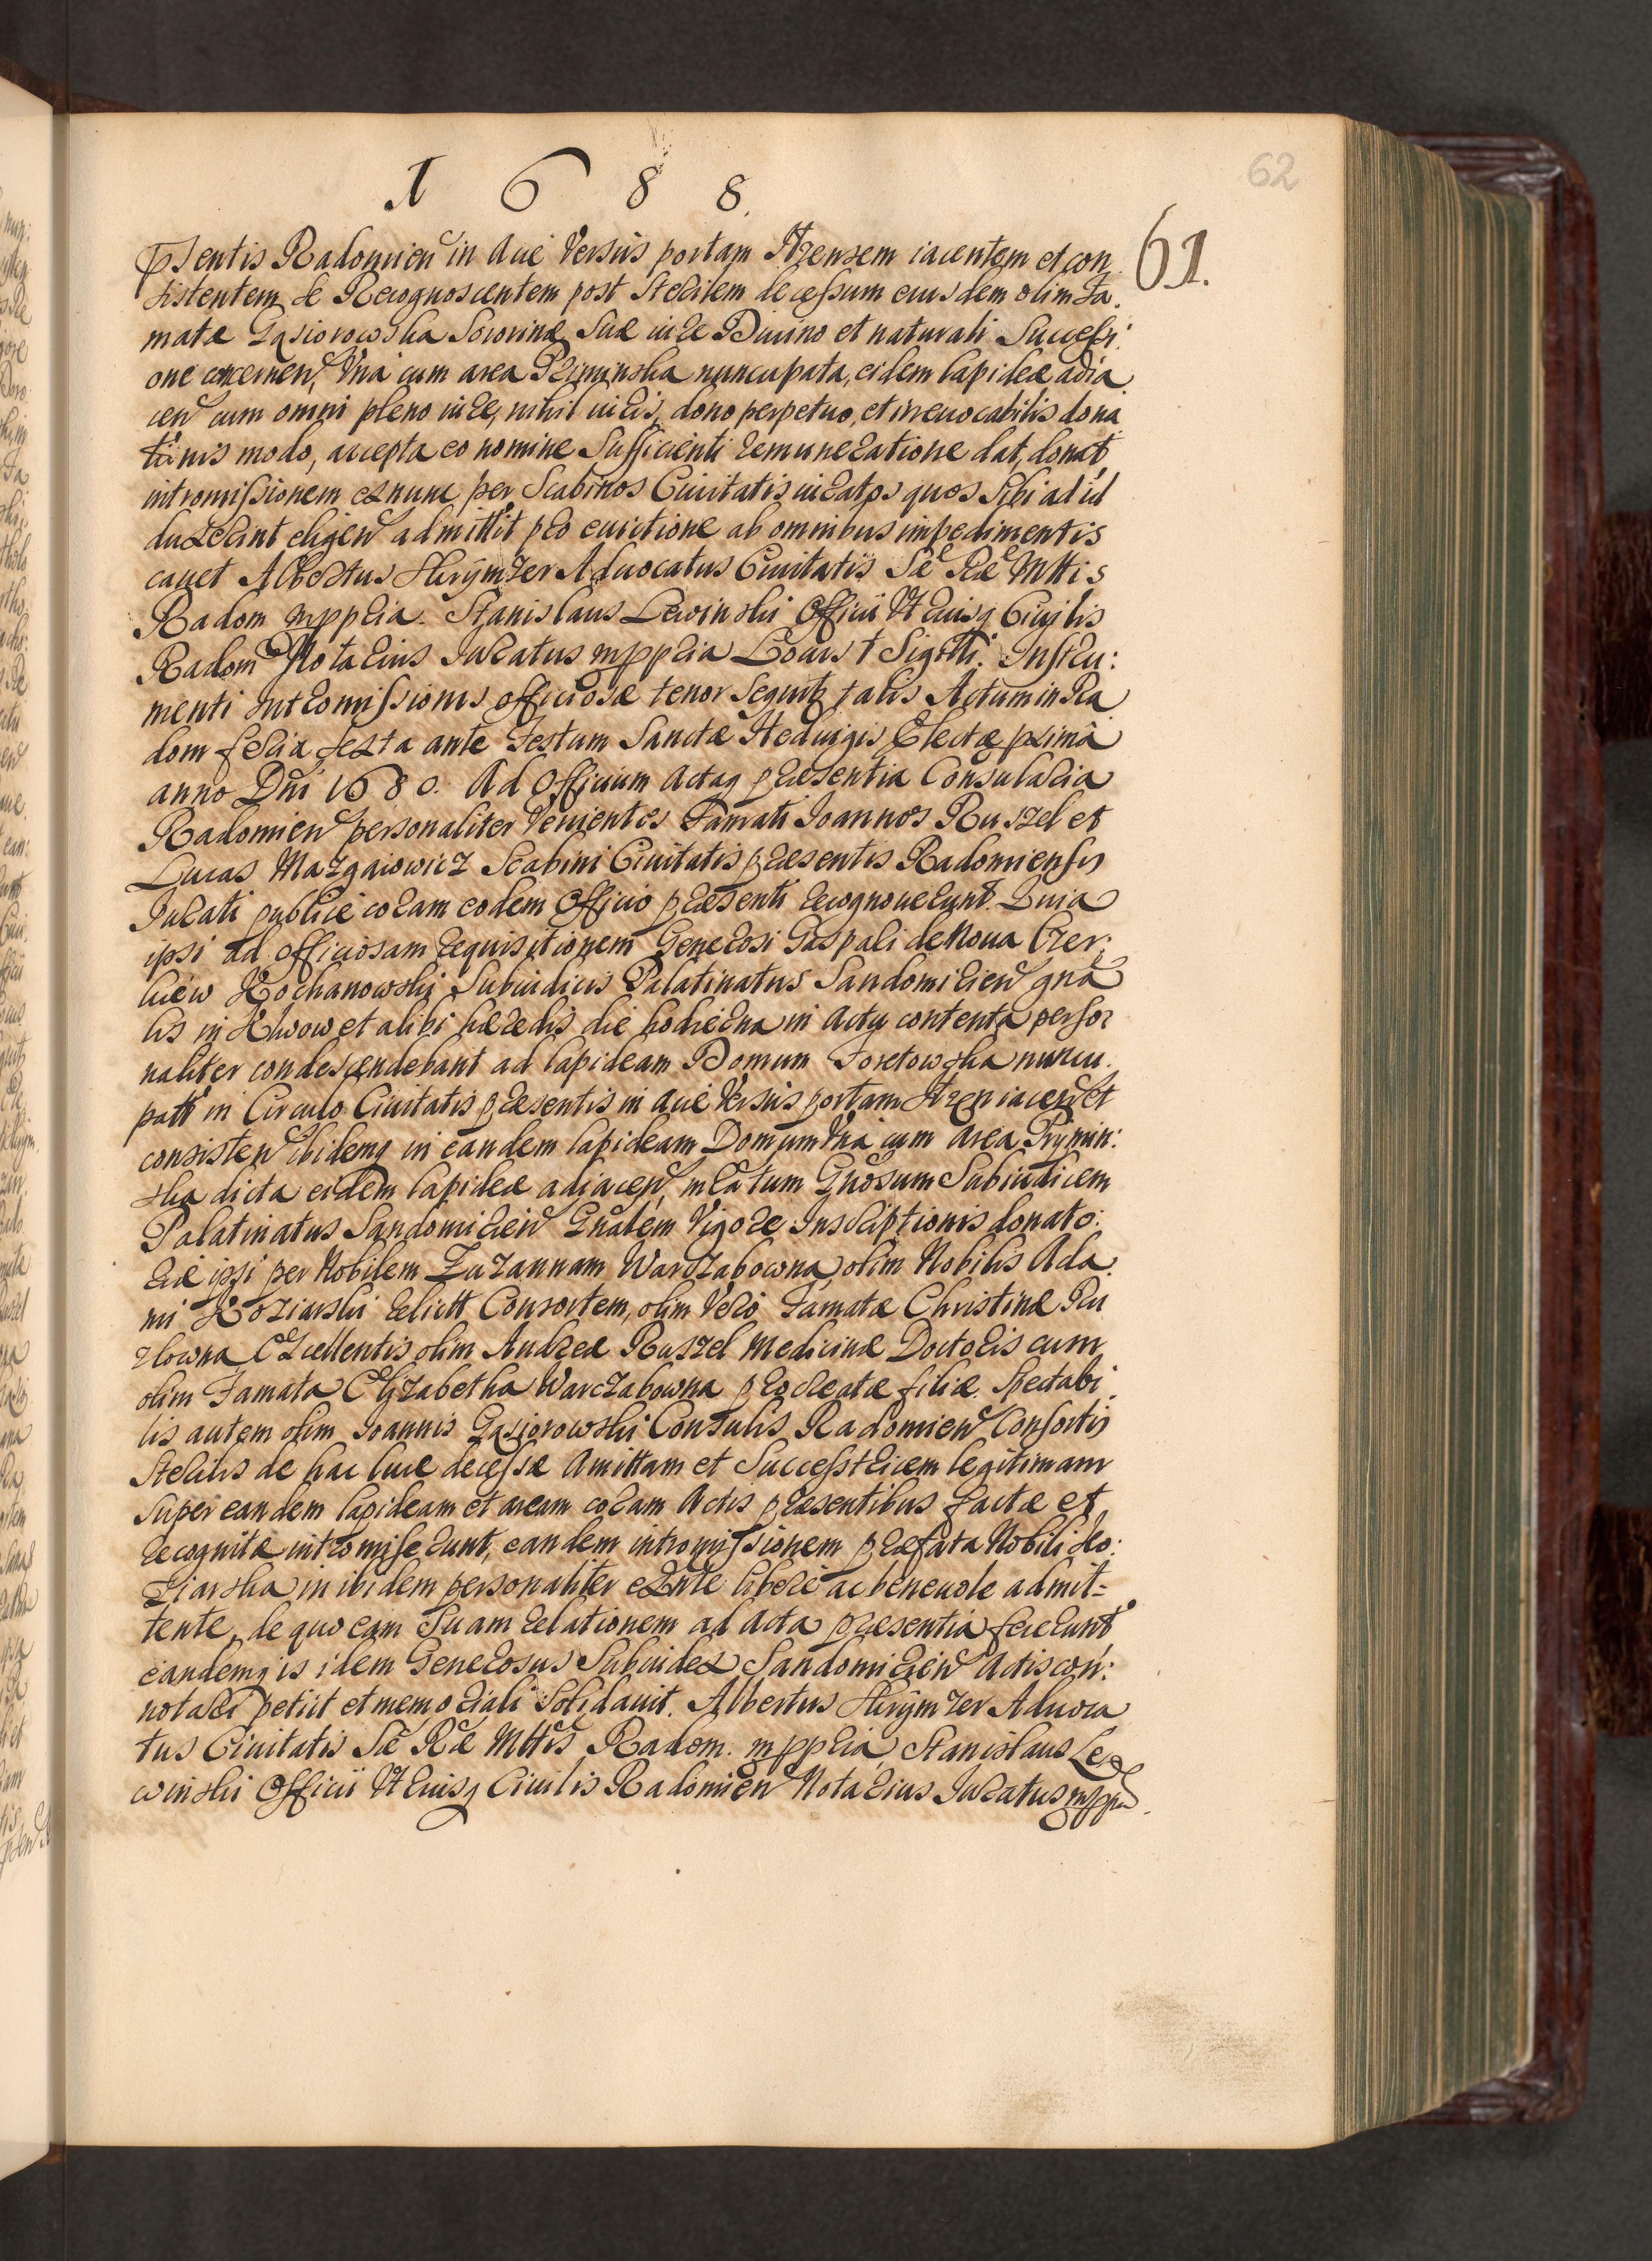 1688.
62
61.
pſentis Radomien in Acie Versus portam Itzensem iacentem et con
sistentem se Recognoscentem post sterilem decessum eiusdem olim Fa.
matæ Gąsiorowska Sororinæ Suæ iure Diuino et naturali Successi:
one concernen, Vna cum area Priminska nuncupata, eidem lapideæ adia
cen cum omni pleno iure, nihil iuris, dono perpetuo, et irreuocabilis dona
tionis modo, accepta eo nomine Sufficienti remuneratione dat, donat,
intromissionem exnunc per Scabinos Ciuitatis iuratos quos Sibi ad id
duxerint eligen admittit pro euictione ab omnibus impedimentis
cauet Albertus Skrymzer Aduocatus Ciuitatis Sæ Ræ Mttis
Radom mppria. Stanislaus Lewinski Officii Vtriusq Ciuilis
Radom Notarius Juratus mppria Locus † Sigilli. Instru:
menti Intromissionis officiosæ tenor sequitr talis Actum in Ra
dom feria sexta ante Festum Sanctæ Heduigis Electæ prima
anno Dni 1680. Ad Officium Actaq præsentia Consularia
Radomien personaliter Venientes Famati Joannes Ruszel et
Lucas Mazgaiowicz Scabini Ciuitatis præsentis Radomiensis
Jurati publice coram eodem Officio præsenti recognouerunt. Quia
ipsi ad officiosam requisitionem Generosi Gaspari de Noua Czer:
kiew Kochanowski Subiudicis Palatinatus Sandomirien gna
lis in Klwow et alibi hæredis die hodierna in Actu contenta perso
naliter condescendebant ad lapideam Domum Foretowska nuncu.
patt in Circulo Ciuitatis præsentis in acie Versus portam Itzen iacen et
consisten ibidemq in eandem lapideam Domum Vna cum Area Prymin:
ska dicta eidem lapideæ adiacen, mratum Gnosum Subiudicem
Palatinatus Sandomirien Gnalem Vigore Inscriptionis donato:
riæ ipsi per Nobilem Zuzannam Warczabowna, olim Nobilis Ada.
mi Koziarski relictt Consortem, olim Vero Famatæ Christinæ Ru
zlowna Excellentis olim Andreæ Ruszel Medicinæ Doctoris cum
olim Famata Elizabetha Warczabowna procreatæ filiæ. Spectabi
lis autem olim Joannis Gąsiorowski Consulis Radomien Consortis
Sterilis de hac luce decessæ Amittam et Successtricem legitimam
Super eandem lapideam et aream coram Actis præsentibus factæ et
recognitæ intromiserunt, eandem intromissionem præfata Nobili Ko:
ziarska in ibidem personaliter exnte libere ac beneuole admit-
tente, de quo eam Suam relationem ad Acta præsentia fecerunt
eandemq is idem Generosus Subiudex Sandomirien Actis con:
notari petiit et memoriali Solidauit. Albertus Skrymzer Aduoca
tus Ciuitatis Sæ Ræ Mttis Radom. mppria, Stanislaus Le
winski Officii Vtriusq Ciuilis Radomien Notarius Juratus mppria.